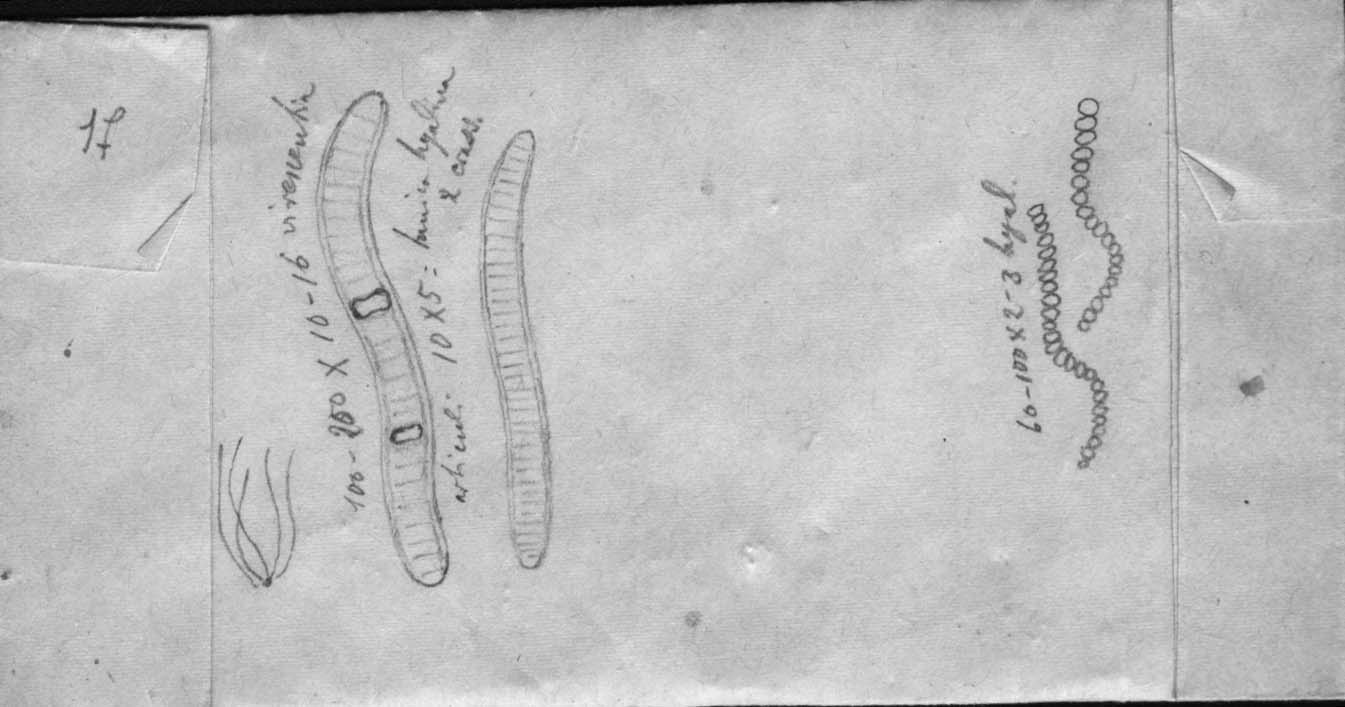 100-200 X 10-16 virescentia
articuli 10 X 5 - tunica hyalina
2 crass.
60-100 x 2-3 hyal.